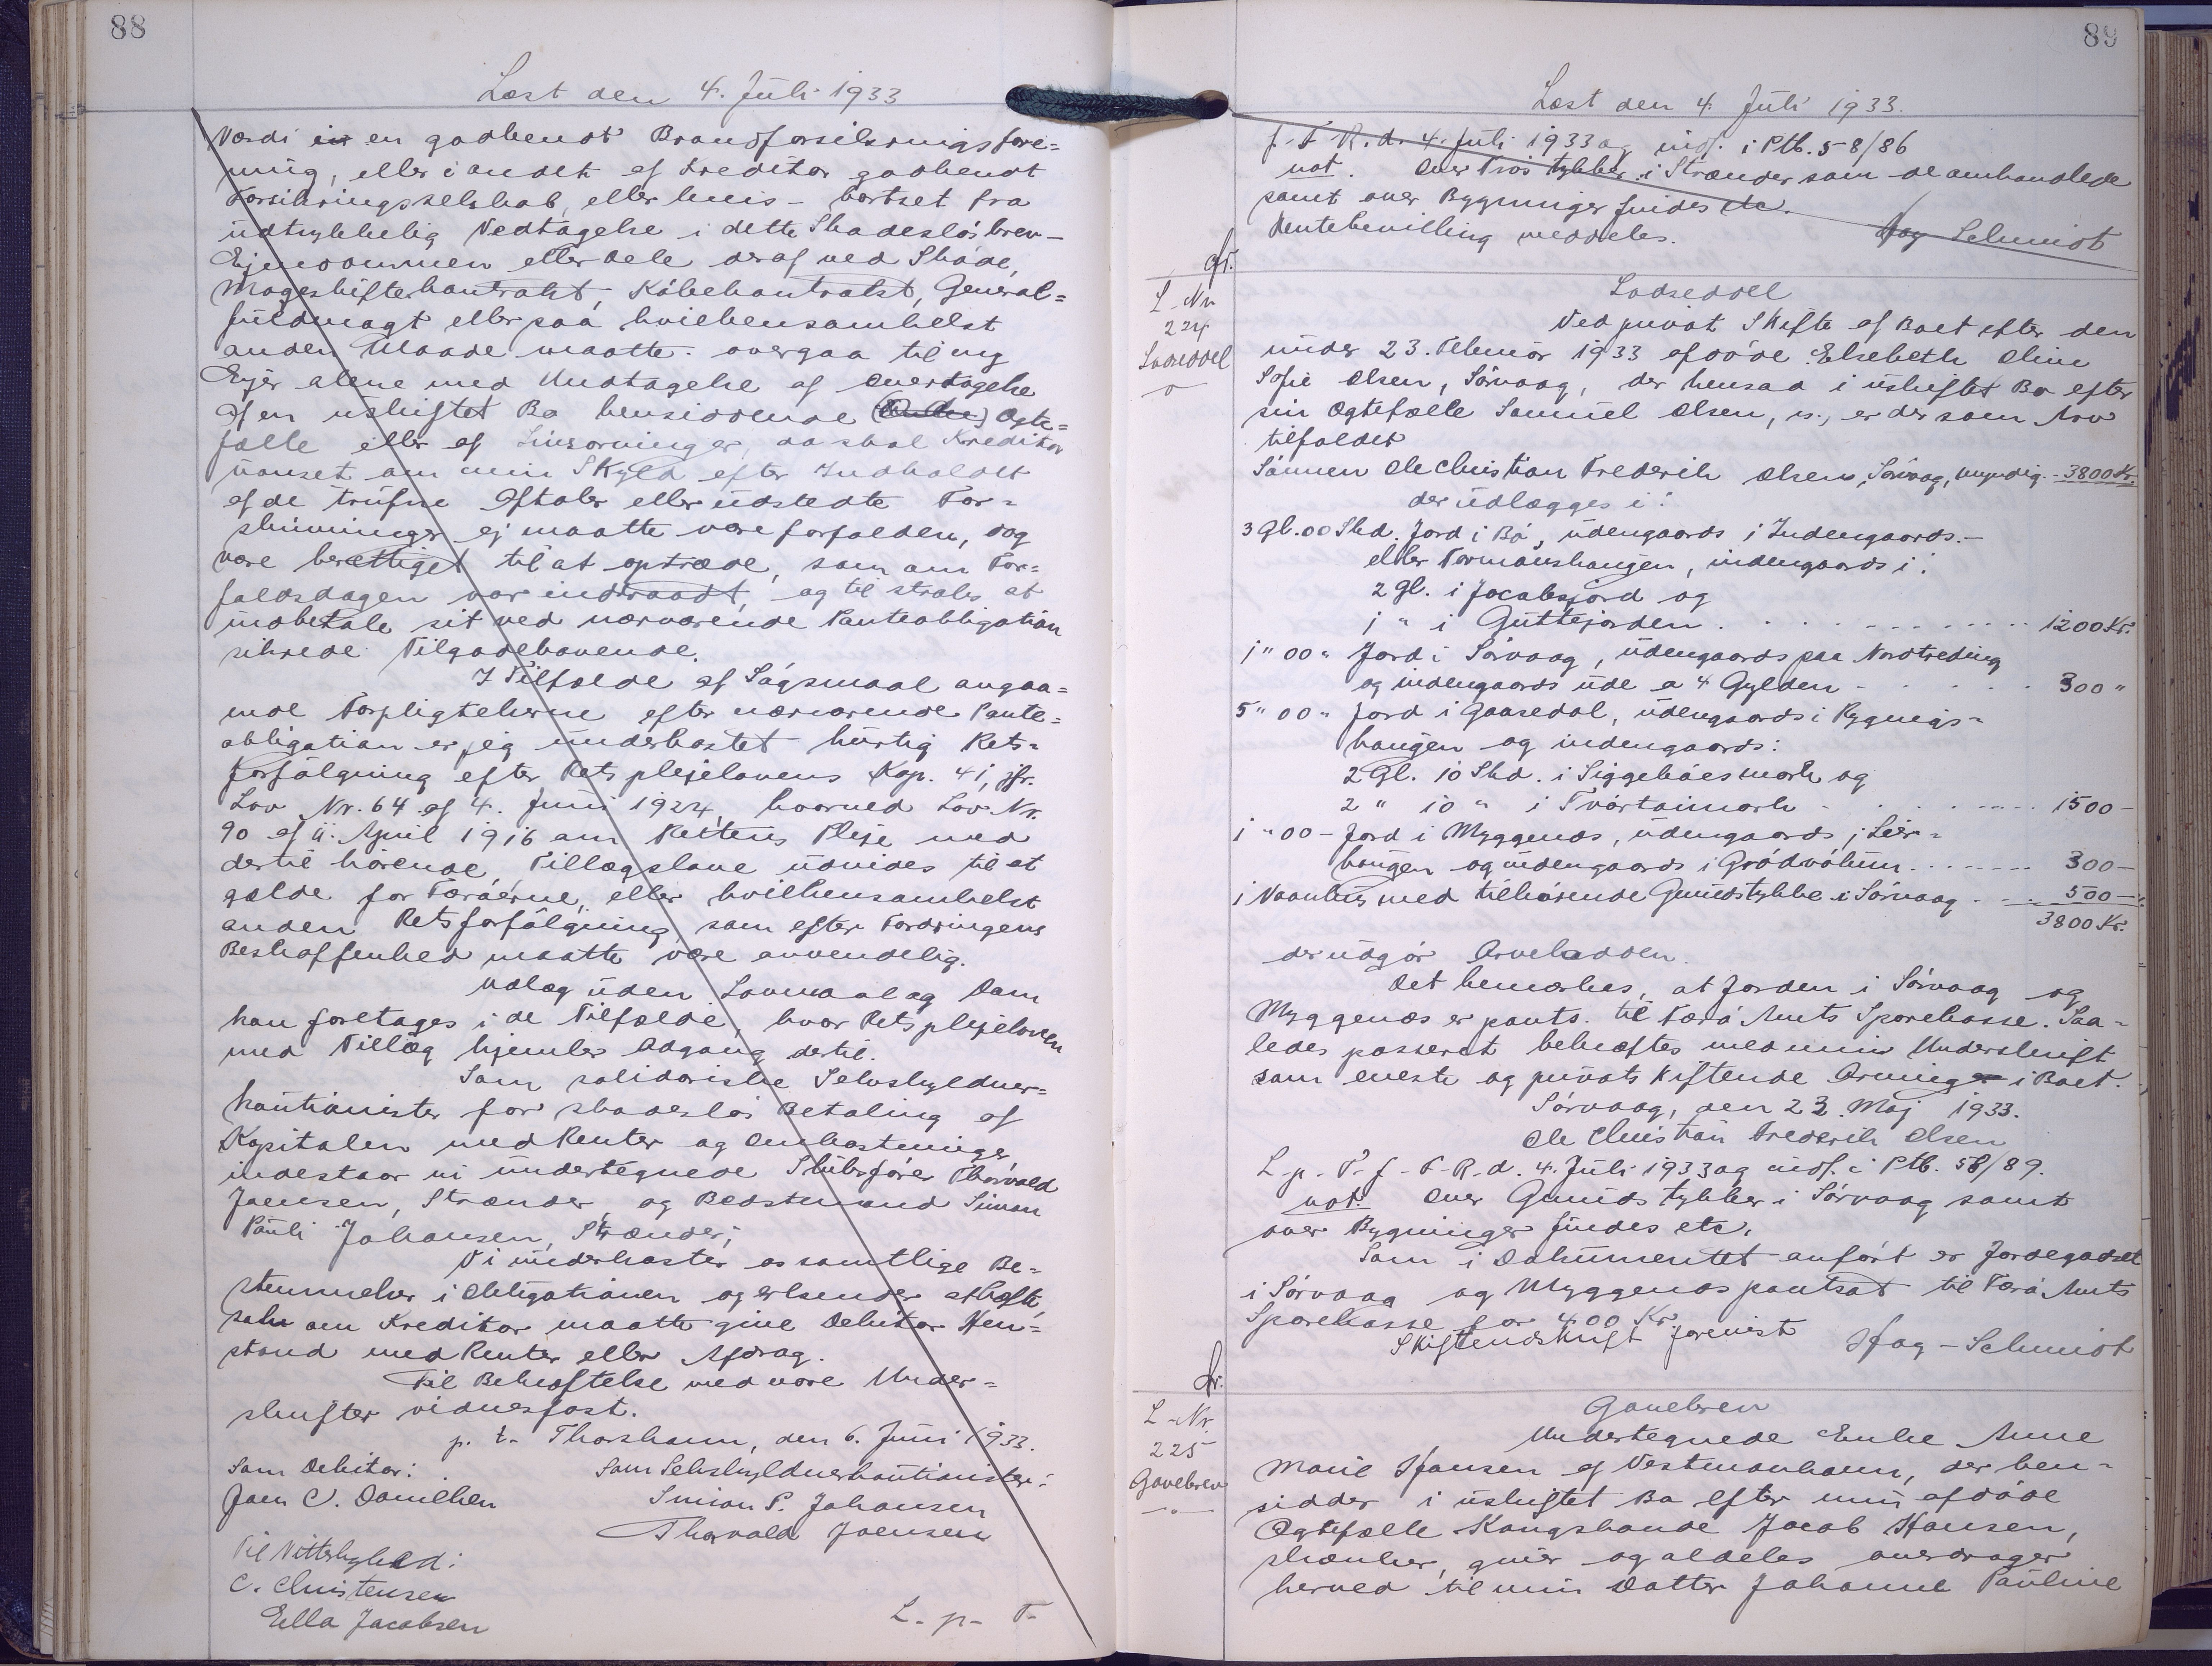 88
Læst den 4. Juli 1933
Værdi i en godkendt Brandforsikringsfore=
ning, eller i andet af Kreditor godkendt
Forsikringsselskab, eller hvis - bortset fra
udtrykkelig Vedtagelse i dette Skadesløsbrev -
Ejendommen eller Dele deraf ved Skøde,
Mageskiftekontrakt, Købekontrakt, General=
fuldmagt eller paa hvilkensomhelst
anden Maade maatte overgaa til ny
Ejer alene med Undtagelse af Overtagelse
af en i uskiftet Bo hensiddende Ægte=
fælle eller af Livsarvinger, da skal Kreditor
uanset om min Skyld efter Indholdet
af de trufne Aftaler eller udstedte For=
skrivninger ej maatte være forfalden, dog
være berettiget til at optræde, som om For=
faldsdagen var indtraadt, og tilstrales at
indbetale sit ved nærværende Panteobligation
sikrede Tilgodehavende.
I Tilfælde af Søgsmaal angaa=
ende Forpligtelserne efter nærværende Pante=
obligation er jeg underkastet hurtig Rets=
forfølgning efter Retsplejelovens Kap. 41, jfr.
Lov Nr. 64 af 4. Juni 1924, hvorved Lov Nr.
90 af 11. April 1916 om Rettens Pleje med
dertil hørende Tillægslove udvides til at
gælde for Færøerne, eller hvilkensomhelst
anden Retsforfølgning, som efter Fordringens
Beskaffenhed maatte være anvendelig.
Udlæg uden Lovmaal og Dom
kan foretages i de Tilfælde, hvor Retsplejeloven
med Tillæg hjemler Adgang dertil.
Som solidariske Selvskyldner=
kautionister for skadesløs Betaling af
Kapitalen med Renter og Omkostninger
indestaar vi undertegnede Skibsfører Thorvald
Joensen, Strænder, og Bedstemand Simon
Pauli Johansen, Strænder;
Vi underkaster os samtlige Be=
stemmelser i Obligationen og erkender at hæfte,
selv om Kreditor maatte give Debitor Hen=
stand med Renter eller Afdrag.
Til Bekræftelse med vore Under=
skrifter vidnesfast.
p. t. Thorshavn, den 6. Juni 1933.
Som Debitor: Som Selvskyldnerkautionister:
Joen C. Danielsen Simon P. Johansen
Thorvald Joensen
Til Vitterlighed:
C. Christensen
Ella Jacobsen L. p. T.
89
Læst den 4. Juli 1933.
f. F. R. d. 4. Juli 1933 og indf. i Ptb. 58/86
not. Over Grdstykker i Strænder som de omhandlede
samt over Bygninger findes etc.
Rentebevilling meddeles. Hag Schmidt
gr.
L. Nr.
224
Lodseddel
Lodseddel
Ved privat Skifte af Boet efter den
under 23. Februar 1933 afdøde Elsebeth Oline
Sofie Olsen, Sørvaag, der hensad i uskiftet Bo efter
sin Ægtefælle Samuel Olsen, s., er der som Arv
tilfaldet
Sønnen Ole Christian Frederik Olsen, Sørvaag, myndig - 3800 Kr.
der udlægges i:
3 Gl. 00 Skd. Jord i Bø, udengaards i Indengaards.-
eller Formanshaugen, indengaards i:
2 Gl. i Jacobsjord og
1 " i Guttejorden . . . . . . . . . 1200 Kr.
1 " 00 " Jord i Sørvaag, udengaards paa Nordtreding
og indengaards ude a 4 Gylden - - - - 300 "
5 " 00 " Jord i Gaasedal, udengaards i Rygnigs=
haugen og indengaards:
2 Gl. 10 Skd. i Siggehúsmørk og
2 " 10 " i Tvørtaimørk - . . . . . . 1500 -
1 " 00 - Jord i Myggenæs, udengaards i Leir=
haugen og indengaards i Grødvølum . . . . . 300 -
1 Vaanhus med tilhørende Grundstykke i Sørvaag . . . 500 -
3800 Kr.
der udgør Arvelodden.
Det bemærkes, at Jorden i Sørvaag og
Myggenæs er pants. til Færø Amts Sparekasse. Saa=
ledes passeret bekræftes med min Underskrift
som eneste og privatskiftende Arving i Boet.
Sørvaag, den 23. Maj 1933.
Ole Christian Frederik Olsen
L. p. T. f. F. R. d. 4. Juli 1933 og indf. i Ptb. 58/89.
not. Over Grundstykker i Sørvaag samt
over Bygninger findes etc.
Som i Dokumentet anført er Jordegodset
i Sørvaag og Myggenæs pantsat til Færø Amts
Sparekasse for 400 Kr.
Skifteudskrift forevist Hag - Schmidt
fr.
L. Nr.
225
Gavebrev
- " -
Gavebrev
Undertegnede Enke Anne
Marie Hansen af Vestmanhavn, der hen=
sidder i uskiftet Bo efter min afdøde
Ægtefælle Kongsbonde Jacob Hansen,
skænker, giver og aldeles overdrager
herved til min Datter Johanne Pauline